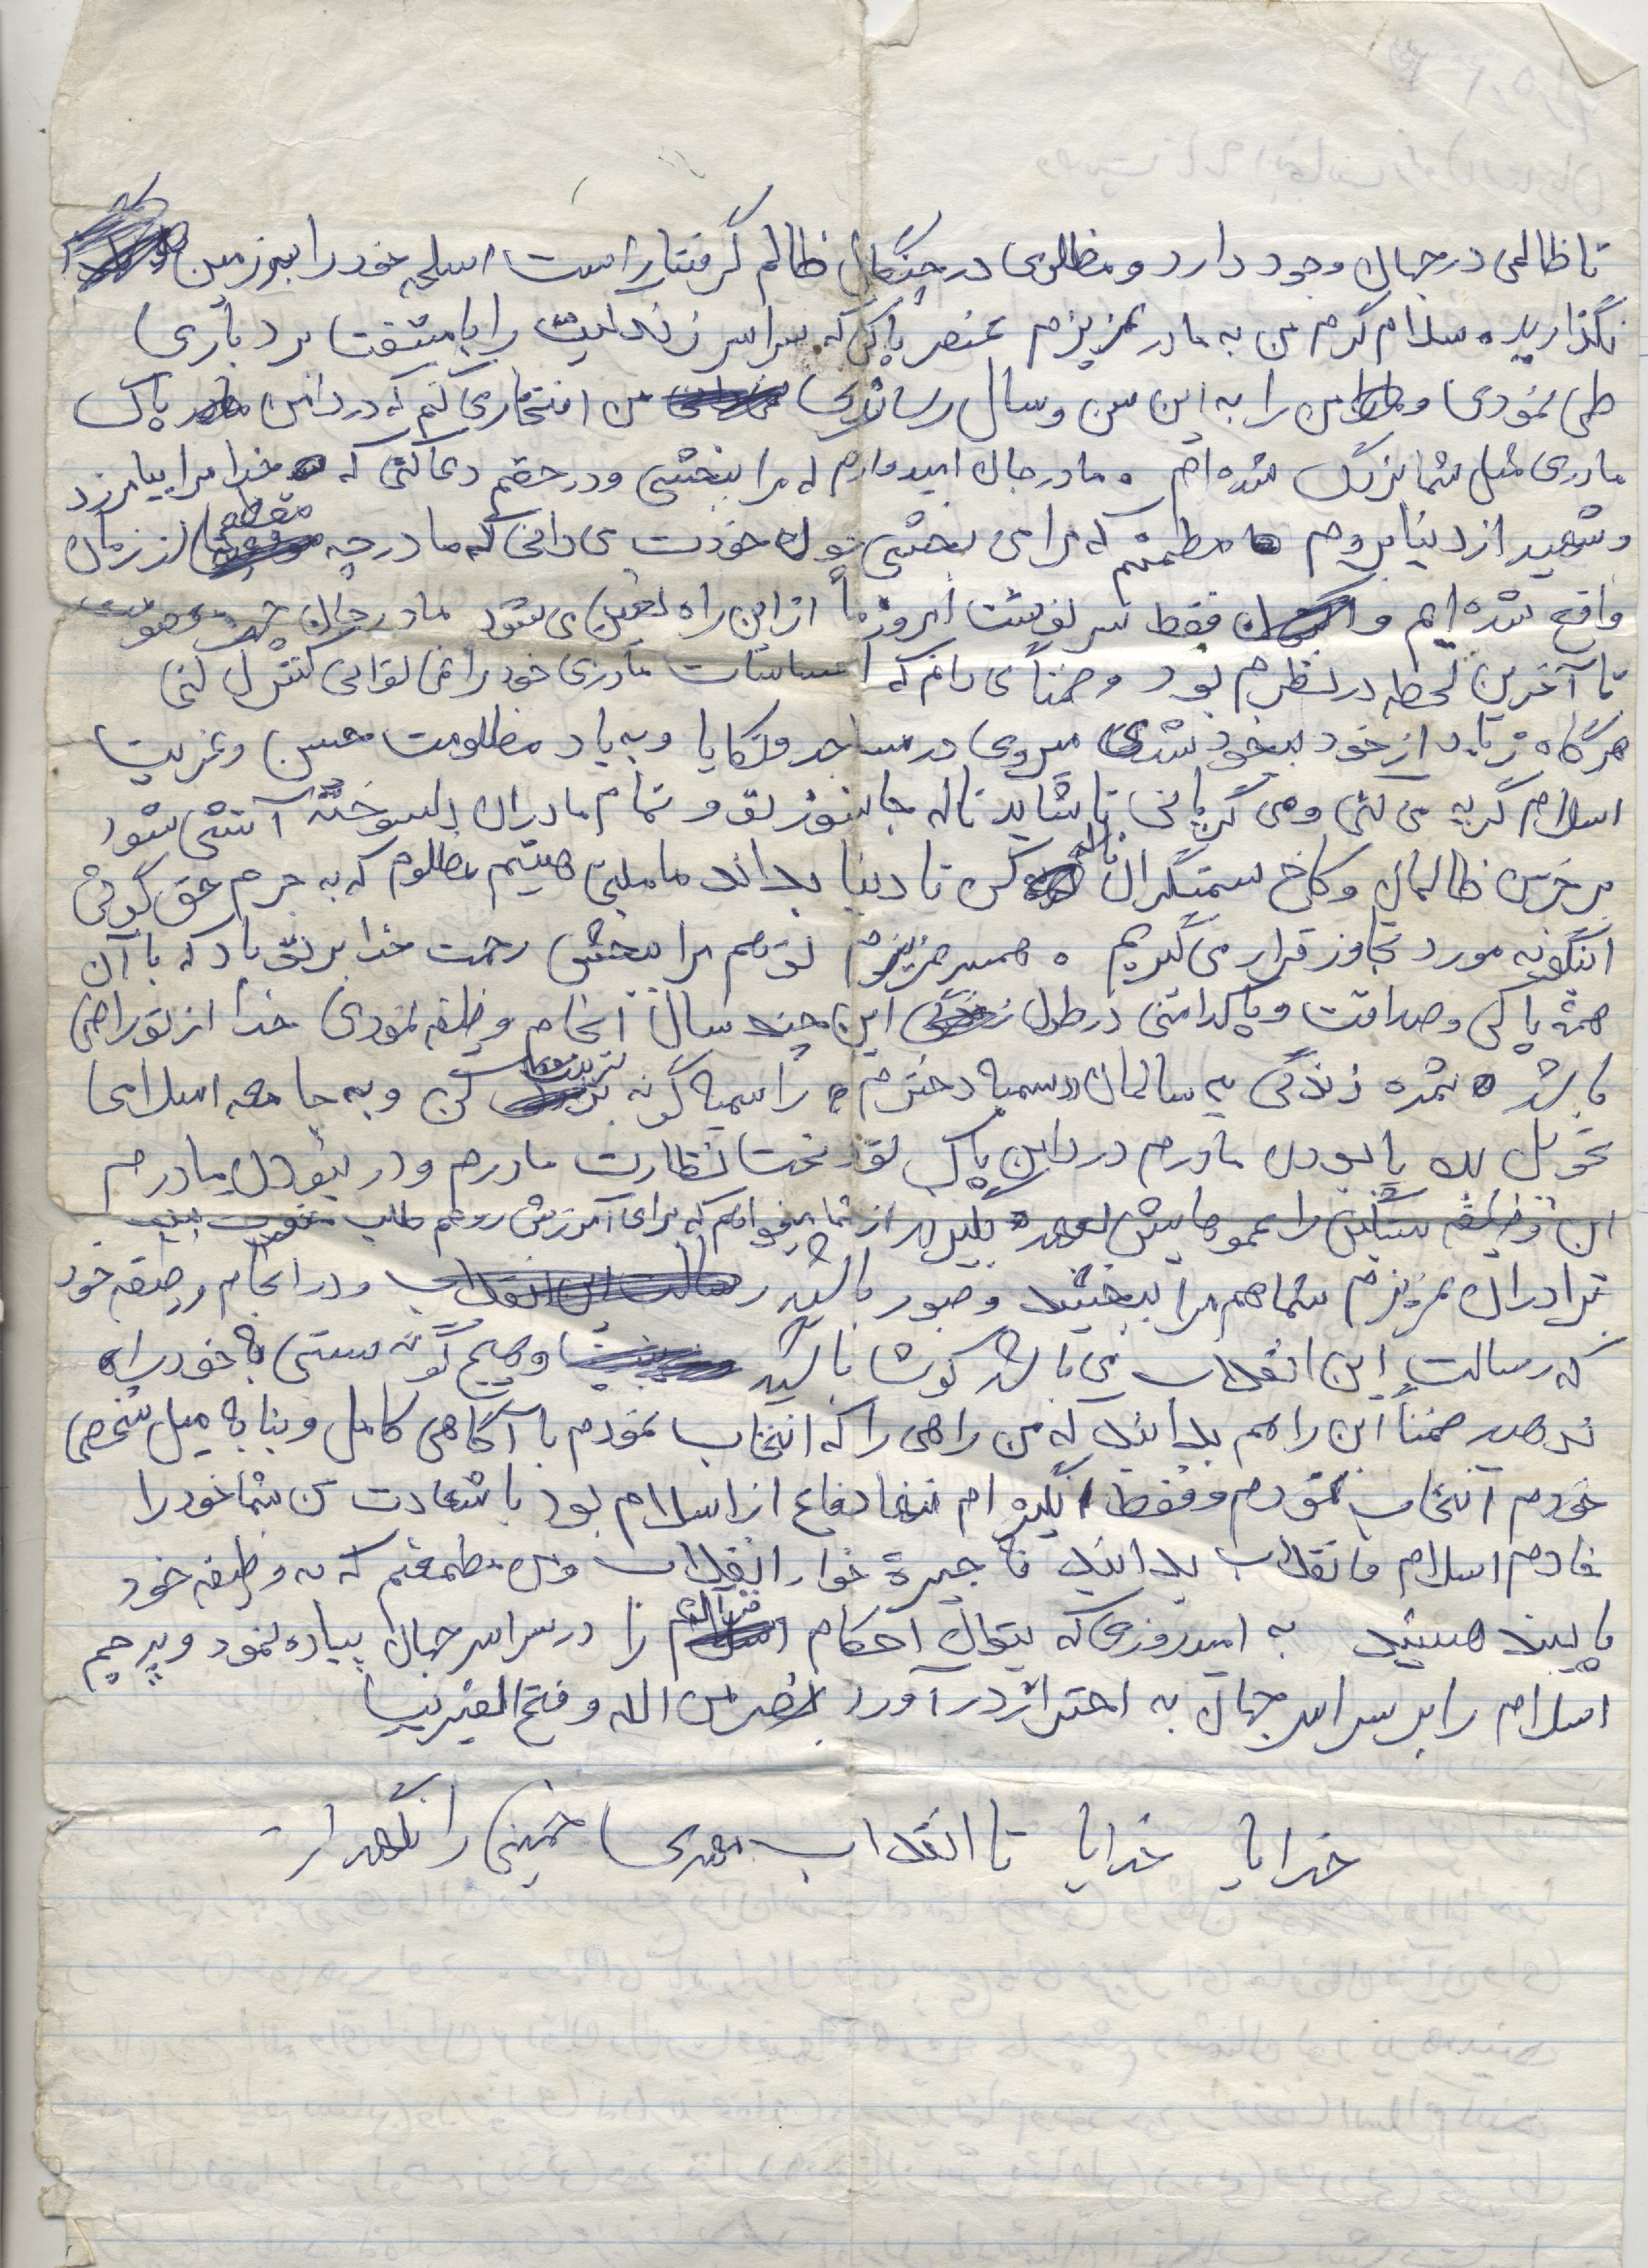 تا ظالمی در جهان وجود دارد و مظلومی در چنگال ظالم گرفتار است اسلحه خود را بر زمین
نگذارید. سلام گرم من به مادر عزیزم عنصر پاکی که سراسر زندگیت را با مشقت بردباری
طی نمودی و من را به این سن و سال رساندی من افتخار می کنم که در دامن پاک
مادری مثل شما بزرگ شده ام. مادر جان امیدوارم که مرا ببخشی و در حقم دعا کنی که خدا مرا بیامرزد
و شهید از دنیا بروم مطمئنم که مرا می بخشی چون خودت می دانی که ما در چه مقطعی از زمان
واقع شده ایم و فقط سرنوشت امروز ما از این راه تعیین می شود مادر جان
تا آخرین لحظه در نظرم بود و ضمناً می دانم که احساسات مادری خود را نمی توانی کنترل کنی
هرگاه زیاد از خود بیخود شدی میروی در مساجد و تکایا و به یاد مظلومیت حسین و غربت
اسلام گریه می کنی و می گریانی تا شاید ناله جانسوز تو و تمام مادران دلسوخته آتشی شود
بر خرمن ظالمان و کاخ ستمگران ناله کن تا دنیا بداند ما ملتی هستیم مظلوم که به جرم حق گوئی
اینگونه مورد تجاوز قرار می گیریم. همسر عزیزم تو هم مرا ببخش رحمت خدا بر تو باد که با آن
همه پاکی و صداقت و پاکدامنی در طول زندگی این چند سال انجام وظیفه نمودی خدا از تو راضی
باشد ثمره زندگی یه سالمان «سمیه دخترم» را سمیه گونه تربیت کن و به جامعه اسلامی
تحویل بده با بودن مادرم در دامن پاک تو تحت نظارت مادرم و در نبودن مادرم
این وظیفه سنگین را عموهایش بعهده بگیرند از شما میخواهم که برای آمرزش روحم طلب مغفرت
برادران عزیزم شما هم مرا ببخشید و صبور باشید و در انجام وظیفه خود
که رسالت این انقلاب می باشد کوشا باشید و هیچ گونه سستی به خود راه
ندهید ضمناً این را هم بدانید که من راهی را که انتخاب نمودم با آگاهی کامل و بنا به میل شخصی
خودم انتخاب نمودم و فقط انگیزه ام تنها دفاع از اسلام بود با شهادت من شما خود را
خادم اسلام و انقلاب بدانید نه جیره خوار انقلاب و من مطمئنم که به وظیفه خود
پایبند هستید به امید روزی که بتوان احکام قرآن را در سراسر جهان پیاده نمود و پرچم
اسلام را بر سراسر جهان به اهتزاز در آورد نصر من الله و فتح القریب
خدایا خدایا تا انقلاب مهدی خمینی را نگهدار